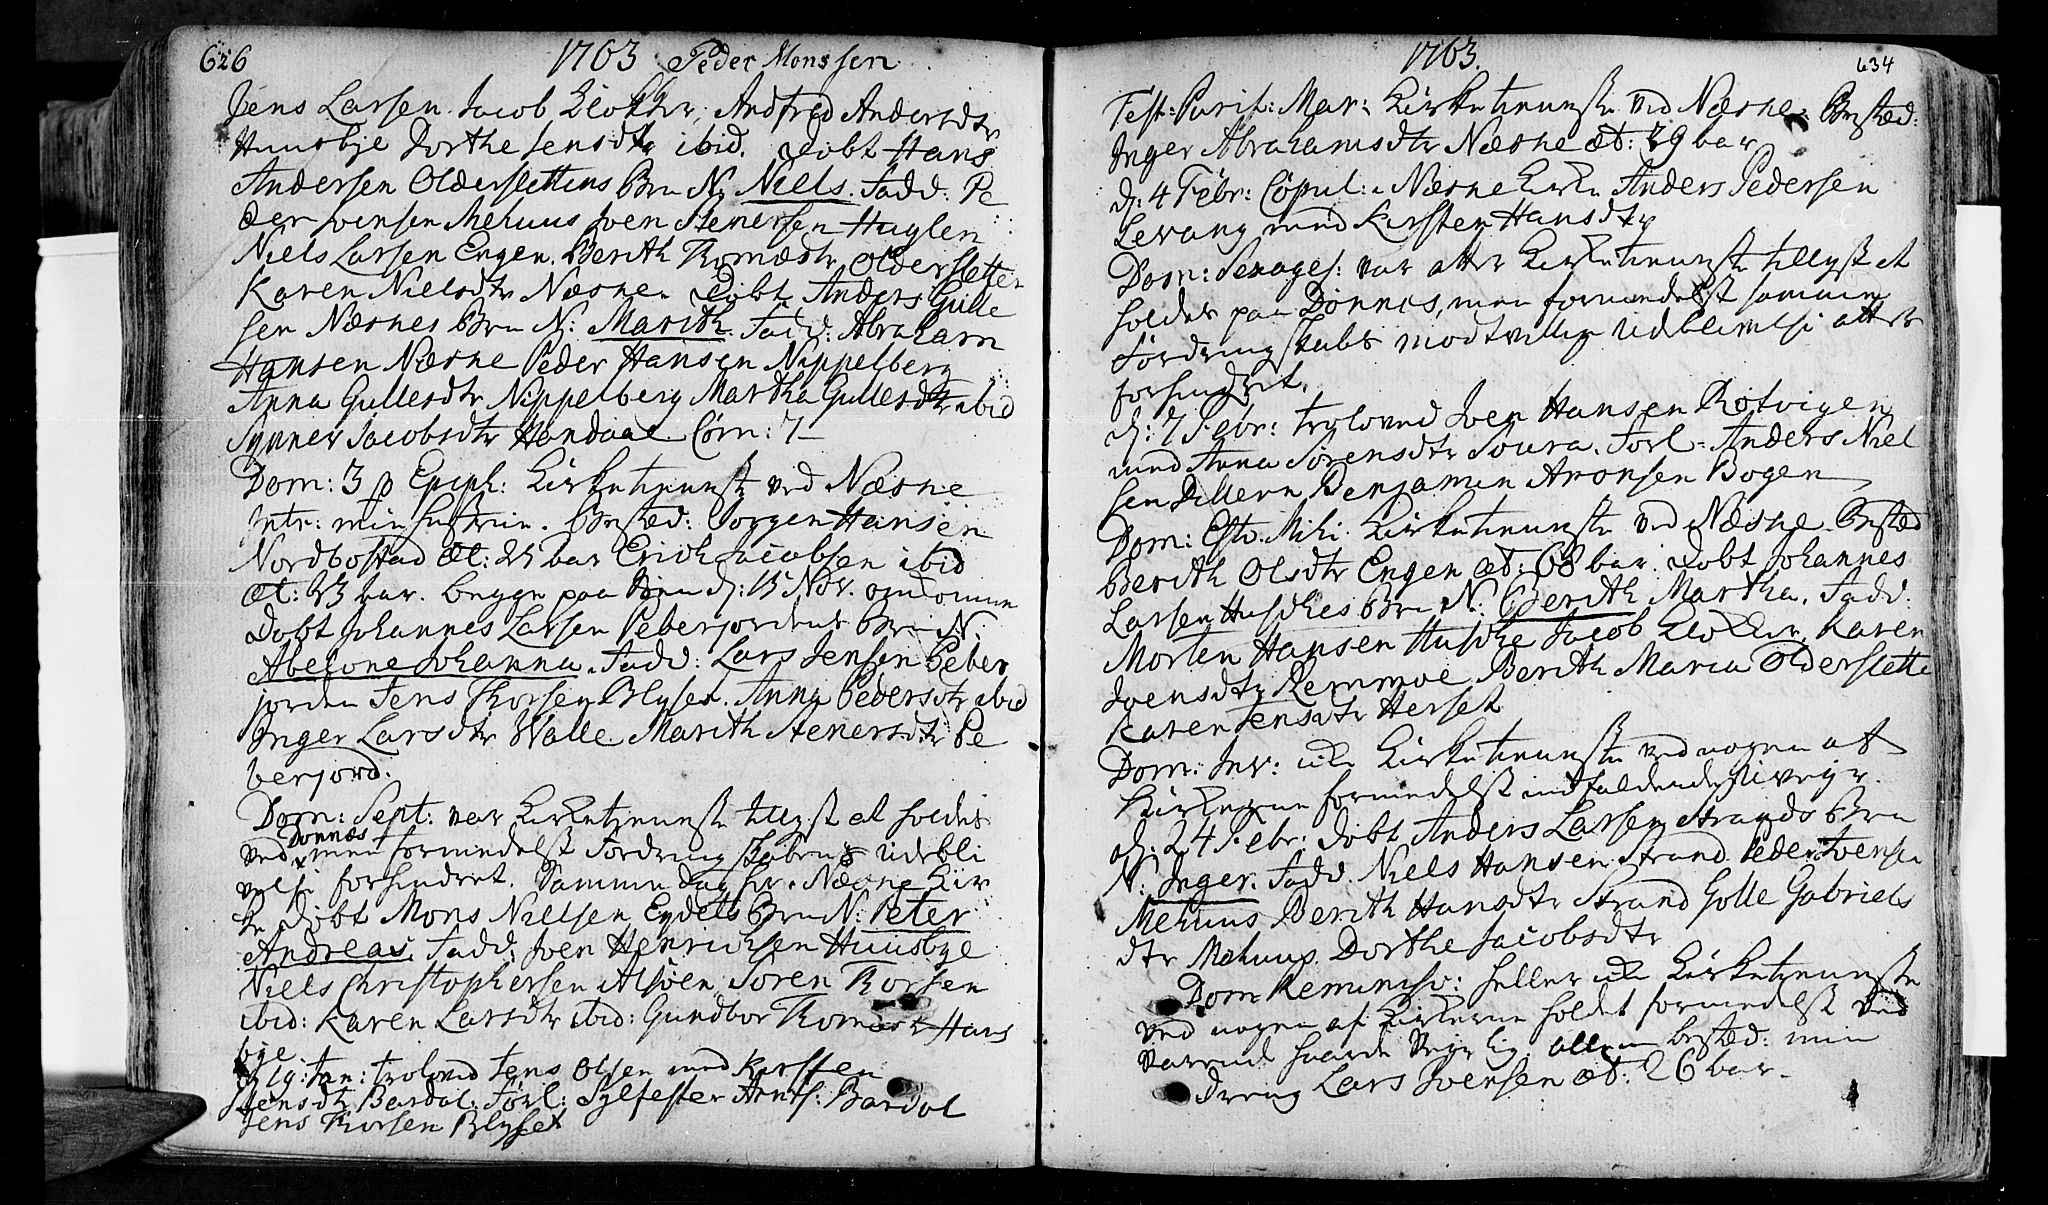 626 1763 Peder Monssen
Jens Larsen Jacob Klokker, Andfred Andersdtr
Huusbye Dorthe Jensdtr ibid. Døbt Hans
Andersen Olderslettens Brn N: Niels. Fadd: Pe
der Ivensen Mehuus Iven Stenersen Huglen
Niels Larsen Engen. Berith Thomædtr Oldersletten
Karen Nielsdtr Næsne. Døbt Anders Gulle
sen Næsnes Brn N: Marith. Fadd: Abraham
Hansen Næsne Peder Hansen Nippelberg
Anna Gullesdtr Nippelberg Martha Gullesdtr ibid
Synner Jacobsdtr Handaal. Com: 7
Dom: 3 p Epiph: Kirketieneste ved Næsne
Intr: min hustrue. Bested: Jørgen Hansen
Nordbostad Æt: 25 bar Erich Jacobsen ibid
Æt: 23 bar. begge paa Søen d: 15 Nov. omkomne
Døbt Johannes Larsen Peberjordens Brn N:
Abelone Johanna. Fadd: Lars Jensen Peber
jorden Jens Thorsen Blyset. Anna Pedersdtr ibid
Inger Larsdtr Walle Marith Stenersdtr Pe
berjord.
Dom: Sept: var Kirketieneste tillyst at holdes
ved Dønnæs men formedelst Fordringskabens udebli
velse forhindret. Samme dag her i Næsne Kir
ke døbt Mons Nielsen Eydets Brn N: Peter
Andreas. Fadd: Iven Henrichsen Huusbye
Niels Christophersen Alsøen Søren Thorsen
ibid: Karen Larsdtr ibid: Gundbor Thomædtr Huus
bye.
d: 19: Jan: trolovid Jens Olsen med Kirsten
Jensdtr Bardal. Forl: Sylfester Arnts: Bardal
Jens Thorsen Blyset
1763. 634
Fest: Purif: Mar: Kirketieneste ved Næsne. Bested:
Inger Abrahamsdtr Næsne æt: 29 bar
d: 4 Febr: Copul: i Næsne Kirke Anders Pedersen
Levang med Kirsten Hansdtr
Dom: Sexages: var atter Kirketieneste tillyst at
holdes paa Dønnes, men formedelst samme
Fordringskabs modtvillige udeblivelse atter
forhindret.
d: 7 Febr: troloved Iven Hansen Røtvigen
med Anna Sørensdtr Soura. Forl: Anders Niel
sen Dillern Benjamin Aronsen Bogen
Dom: Esto Mihi Kirketieneste ved Næsne. Bested
Berith Olsdtr Engen æt: 68 bar. Døbt Johannes
Larsen Huskes Brn N: Berith Martha. Fadd.
Morten Hansen Huske Jacob Klokker. Karen
Ivensdtr Remmoe Berith Maria Oldersletten
Karen Jensdtr Herset
Dom: Inv: icke Kirketieneste ved nogen af
Kirkerne formedelst indfaldende uveyr.
d: 24 Febr: døbt Anders Larsen Strands Brn
N: Inger. Fadd. Niels Hansen Strand Peder Ivensen
Mehuus Berith Hansdtr Strand Golle Gabriels
dtr Mehuus Dorthe Jacobsdtr
Dom Reminisc: heller icke Kirketieneste
ved nogen af Kirkerne holdet formedelst ved
varende haarde Veyr lig. allene bested: min
Dreng Lars Ivensen æt: 26 bar.